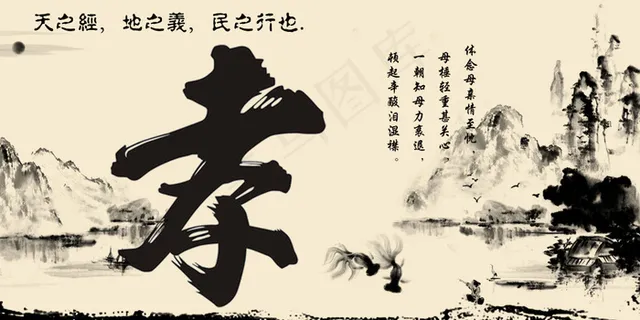 天之經，地之義，民之行也.
孝
休念母亲情至悦，
母棰轻重甚关心，
一朝知母力衰退，
顿起辛酸泪湿襟。